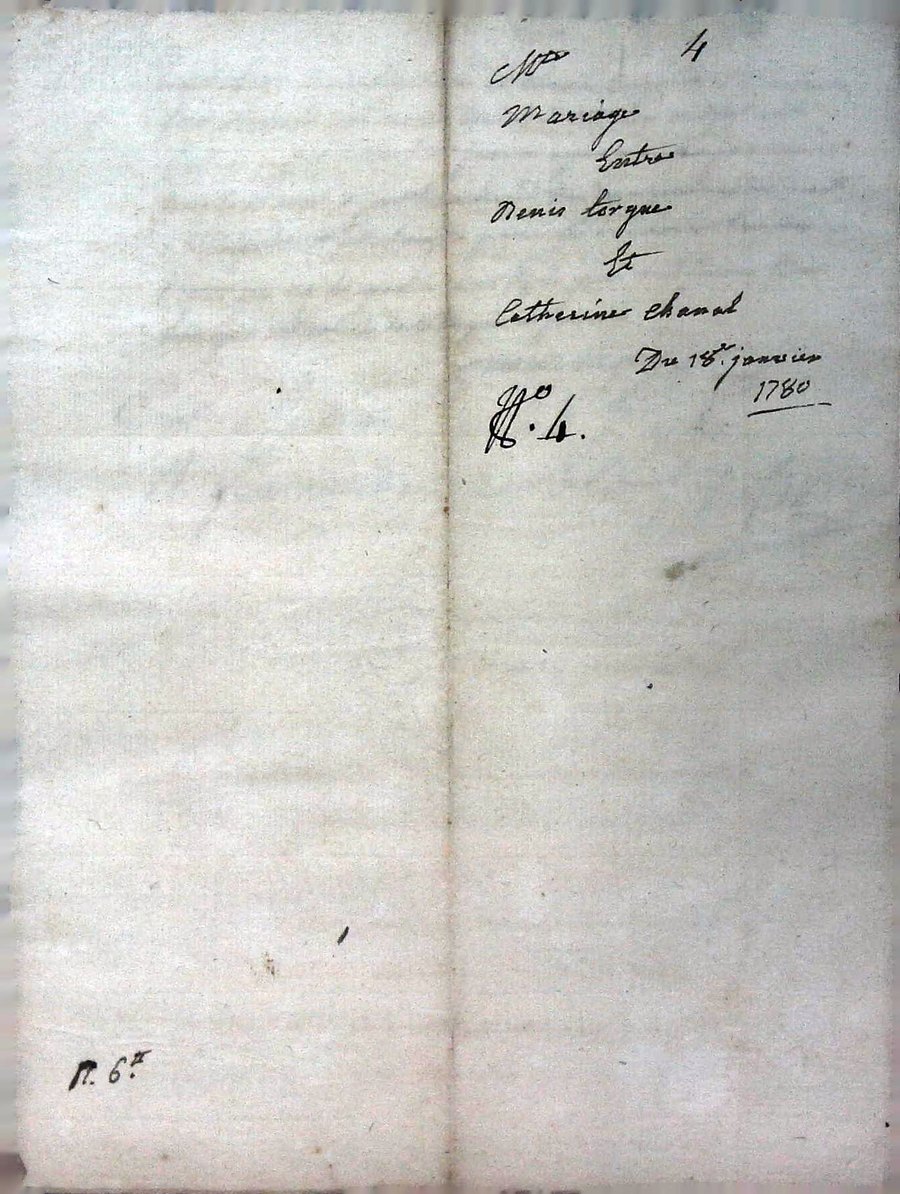 4
Mariage
Entre
Denis torgue
Et
Catherine Chanal
Du 18e. janvier
1780
No. 4.